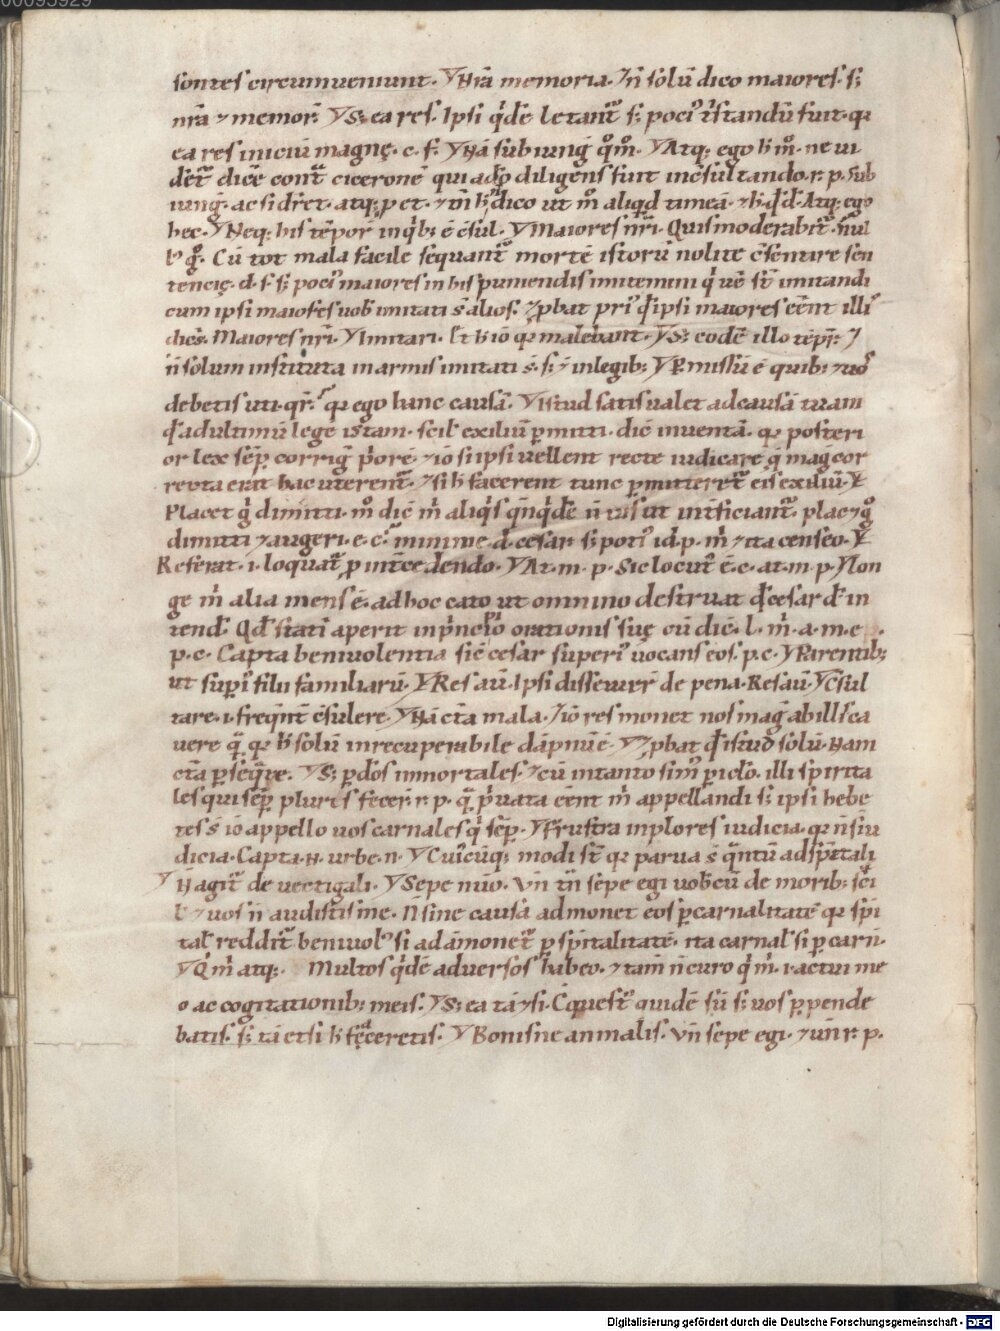 00095929
sontes circumueniunt. Nr̄a memoria. N̄ solū dico maiores. s;
nr̄a ⁊ memor̄. S; ea res. Ipsi q̇dē letant̄ s; poci᷒ tristandū fuit. q̄
ea res iniciū magnę. c. f. Nā subiunḡ q̊m̊. Atq; ego h̄ m̊. ne ui
det̄ dice cont̄ ciceronē qui adp̄ diligens fuit in cōsultando. r. p. sub
iung. ac si dr̄et. atq; p et. ⁊ tn̄ h̄ dico ut m̊ aliqd timeā. ⁊ h̄ q̄d. Atq; ego
hec. Neq; his tēpor̄ in q̇b; ē c̄sul. Maiores nr̄i. Quis moderabit̄. nul
l᷒ g̊. Cū tot mala facile sequant̄ mortē istorū nolite c̄sentire sen
tencię. d. s. s; poci᷒ maiores in his puniendis imitemini q̇ uē st̄ imitandi
cum ipsi maiores uob̄ imitati s̄ alios. ⁊ pbat pri᷒ q̇ ipsi maiores eēnt illi᷒
dic̄s. Maiores nr̄i. Imitari. Et h̄ iō q̄ malebant. S; eodē illo tēpr̄. ⁊
n̄ solum instituta in armis imitati s̄. s; ⁊ in legib; P̄missū ē quib; ⁊ uo᷒
debetis uti. qr̄. q̄ ego hanc causā. Istud satis ualet ad causā tuam
q̄ ad ultimū legē istam. scil̄ exiliū p̄mitti. dic̄ inuentā. q̄ posteri
or lex sēp corriḡ p̄orē. ⁊ iō si ipsi uellent recte iudicare q̄ maḡ cor
recta erat hac uterent̄. ⁊ si h̄ facerent tunc p̄mitterēt̄ eis exiliū.
Placet g̊ dimitti. m̊ dic̄ m̄ aliq̇s q̄nq̇dē n̄ uis ut int̄ficiant̄. placet g̊
dimitti ⁊ augeri. e. c. minime. d. cesar. s; poti᷒ id. p. m̄ ⁊ ita censeo.
Referat. i. loquat̄ p int̄cedendo. At. m. p. Sic locut᷒ ē. c. at. m. p. Non
ge m̄ alia mens ē. ad hoc cato ut omnino destruat q̄ cesar d̄ in
tend̄. Qd̄ statī aperit in p̄ncipio orationis suę cū dic̄. l. m̄. a. m. e.
p. c. Capta beniuolentia sic̄ cesar superi᷒ uocans eos. p. c. Parentib;
ut sup̄i᷒ filii familiarū. Res aū. Ipsi disseuerūt de pena. Res aū. C̄sul
tare. i. freqn̄t c̄sulere. Nā cēta mala. Iō res monet nos maḡ ab illis ca
uere q̄ q̄ h̄ solū inrecuperabile dāpnū ē. ⁊ pbat q̄ istud solū. Nam
cēta p̄seq̄re. S; p̄ dos inmortales. ⁊ cū in tanto sim᷒ piclo. illi spirita
les qui sēp pluris fecer̄ r. p. q̄ p̄uata eēnt m̄ appellandi s; ipsi hebe
tes s̄ iō appello uos carnales q̇ sēp. Frustra inplores iudicia. q̄ n̄ s̄ iu
dicia. Capta. n. urbe. n. Cui᷒cūq; modi st̄ q̄ parua s̄ q̄ntū ad sp̄itali
N̄ agit̄ de uectigali. Sepe mīo. Vn̄ tn̄ sepe egi uob̄cū de morib; sci
l̄ ⁊ uos n̄ audistis me. N̄ sine causā admonet eos p carnalitatē q̄ sp̄i
tal᷒ reddit̄ beniuol᷒ si ad āmonet̄ p sp̄italitatē. ita carnal᷒ si p carn̄.
Q̇ m̄ atq;. Multos q̇dē aduersos habeo. ⁊ tam̄ n̄ curo q̇ m̄. i. actui me
o ac cogitationib; meis. S; ea tā ⁊ si. C̄questus quidē sū s; uos p̄pende
batis. s; tā etsi h̄ faceretis. Bonis ne an malis. Vn̄ sepe egi. ⁊ un̄ r. p.
Digitalisierung gefördert durch die Deutsche Forschungsgemeinschaft - DFG